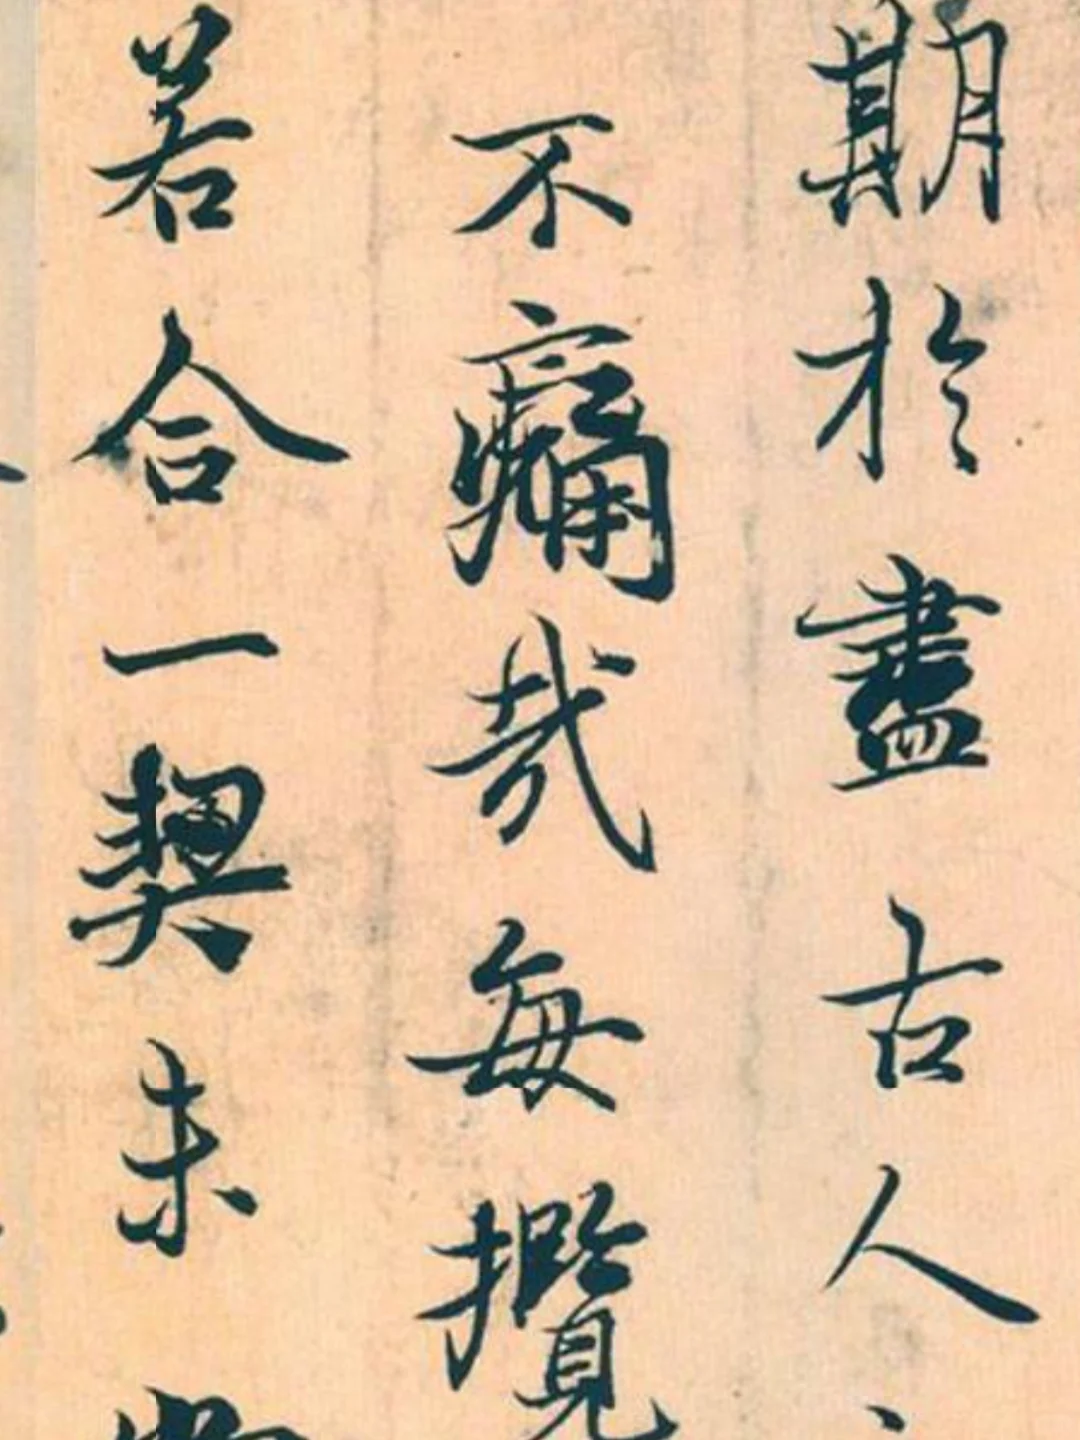 期於盡古人
不痛哉每攬
若合一契未